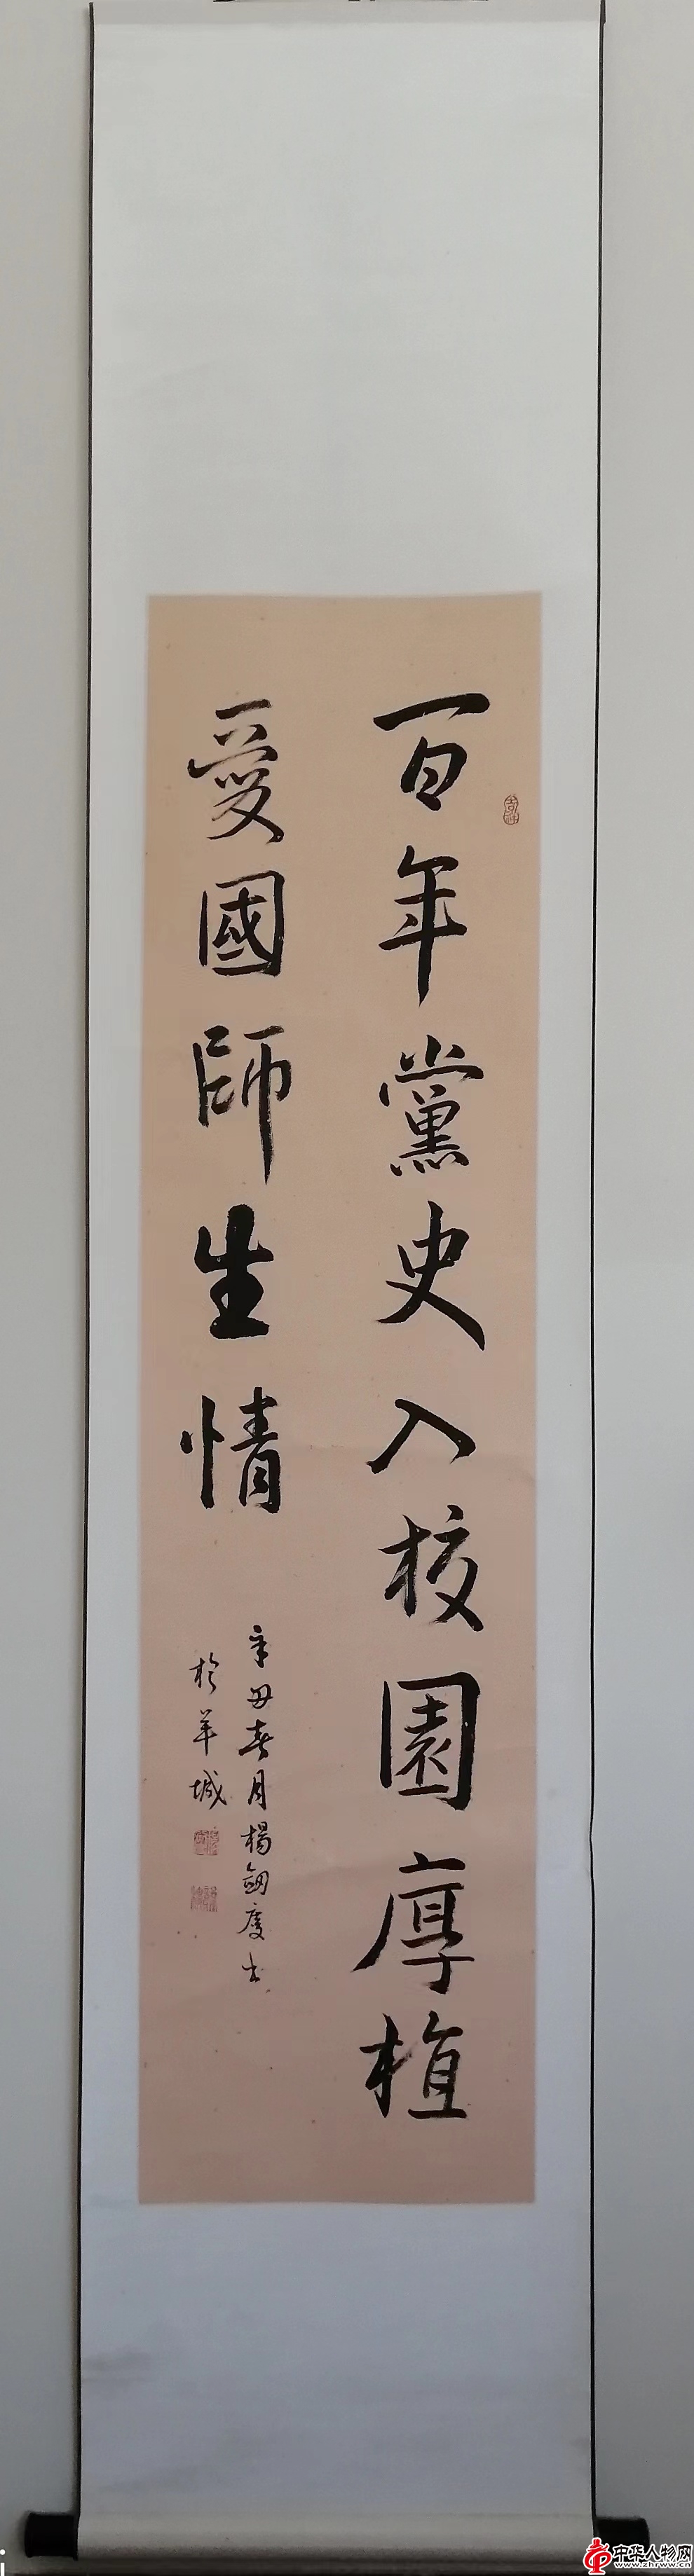 百年黨史入校園厚植
愛國師生情
辛丑春月楊劍慶书
於羊城
中华人物网
www.zhrww.cn